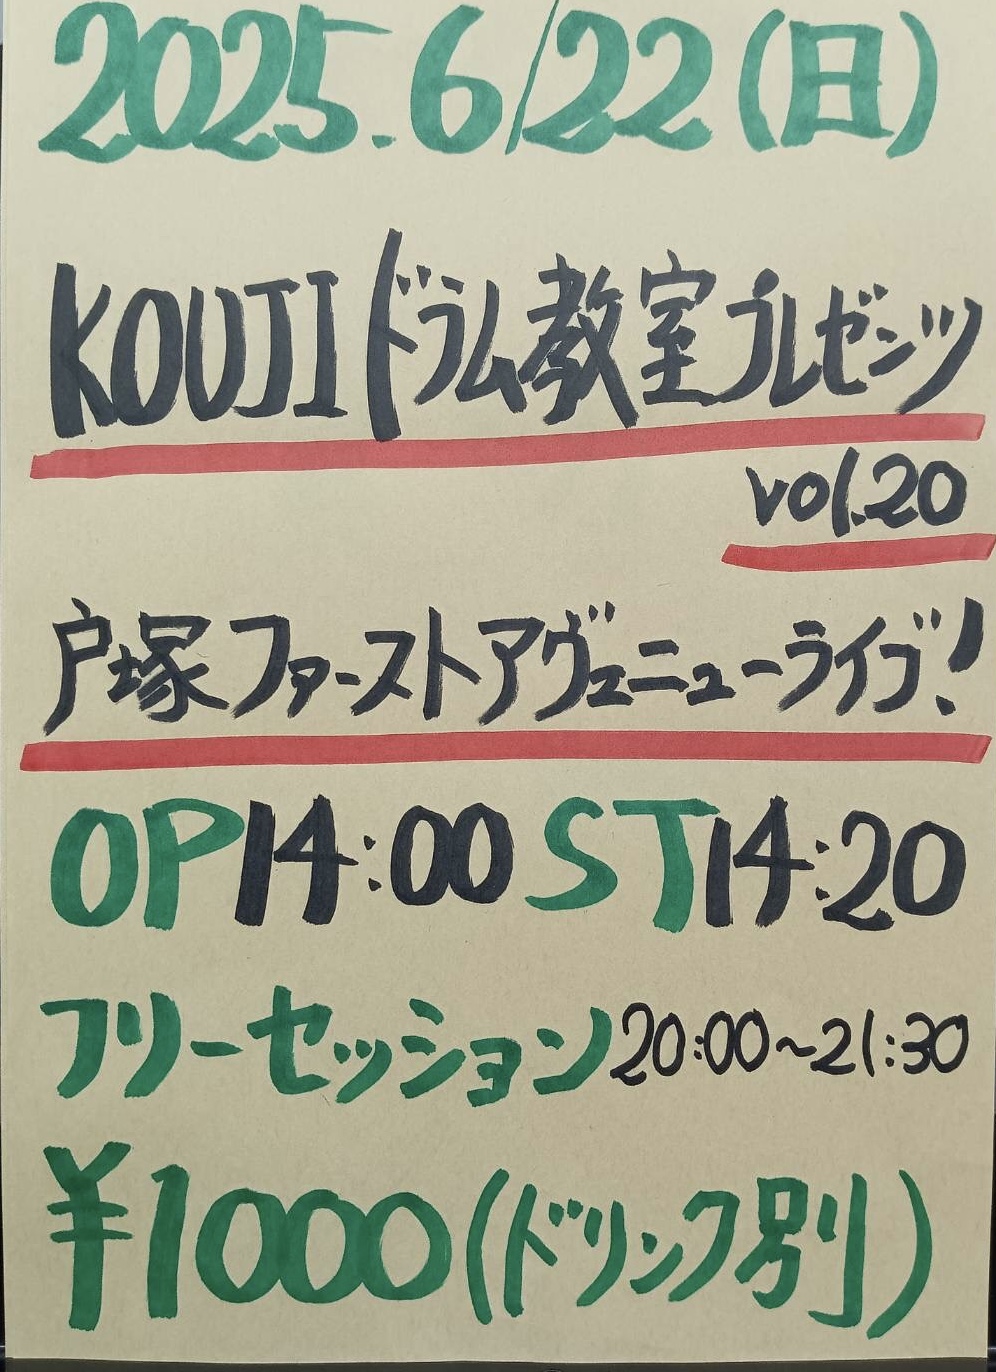 2025.6/22(日)
KOUJIドラム教室プレゼンツ
vol.20
戸塚ファーストアヴェニューライブ!
OP14:00 ST14:20
フリーセッション20:00~21:30
¥1000(ドリンク別)